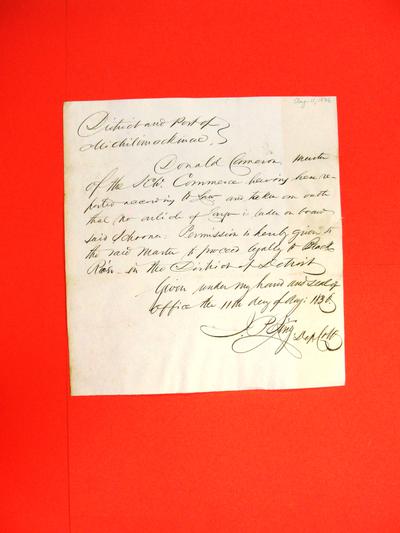 Aug. 11, 1836
District and Port of
Michilimackinac
Donald Cameron, master
of the Schr. Commerce having here re-
ported according to Law and taken an oath
that no article of Cargo is laden on board
said Schooner. Permission is hereby given to
the said Master to proceed legally to Black
River in the District of Detroit
Given under my hand and seal of
office the 11th day of Aug: 1836
Dep. Coll